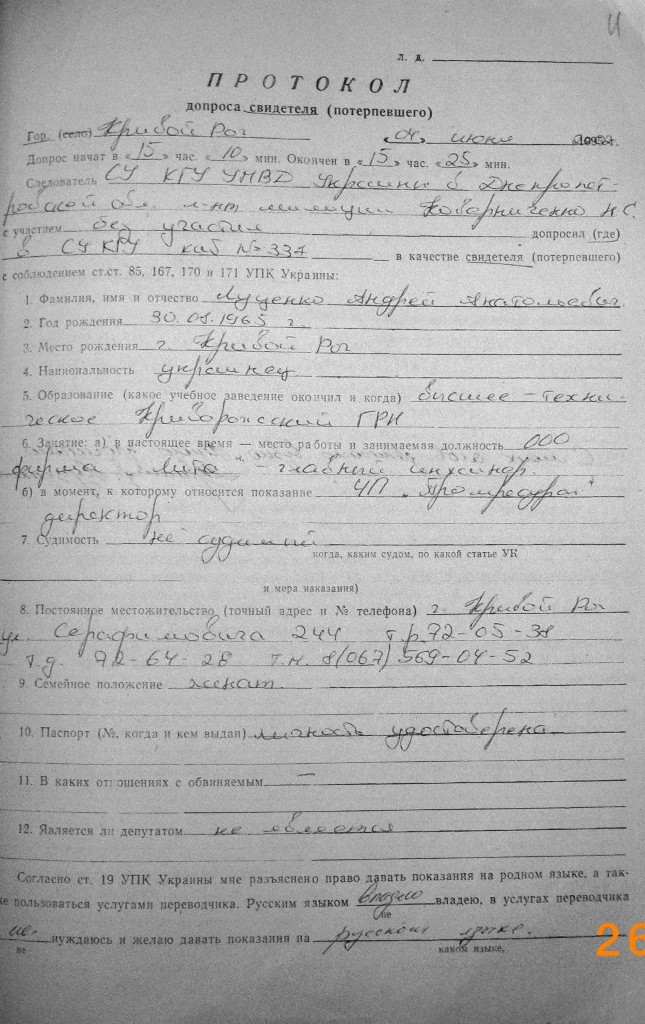 л. д.
ПРОТОКОЛ
допроса свидетеля (потерпевшего)
Гор. (село) Кривой Рог «04» июня
Допрос начат в «15» час. «10» мин. Окончен в «15» час. «25» мин.
Следователь СУ КГУ УМВД Украины в Днепропет-
ровской обл. л-нт милиции Н.С.
с участием без участия допросил (где)
в СУ КГУ каб № 337 в качестве свидетеля (потерпевшего)
с соблюдением ст.ст. 85, 167, 170 и 171 УПК Украины:
1. Фамилия, имя и отчество Луценко Андрей Анатольевич
2. Год рождения 30.01.1965 г.
3. Место рождения г. Кривой Рог
4. Национальность украинец
5. Образование (какое учебное заведение окончил и когда) высшее – техни-
ческое Криворожский ГРИ
6. Занятие: а) в настоящее время — место работы и занимаемая должность ООО
фирма Лита – главный инженер.
б) в момент, к которому относится показание ЧП „Промресурсы"
директор
7. Судимость не судимый
когда, каким судом, по какой статье УК
и мера наказания)
8. Постоянное местожительство (точный адрес и № телефона) г. Кривой Рог
ул. Серафимовича 244 т.р. 92-05-38
т.д. 92-64-28 т.м. 8(067) 569-04-52
9. Семейное положение женат.
10. Паспорт (№, когда и кем выдан) личность удостоверена
11. В каких отношениях с обвиняемым —
12. Является ли депутатом не является
Согласно ст. 19 УПК Украины мне разъяснено право давать показания на родном языке, а так-
же пользоваться услугами переводчика. Русским языком владею владею, в услугах переводчика
не
не нуждаюсь и желаю давать показания на русском языке.
не каком языке,
26